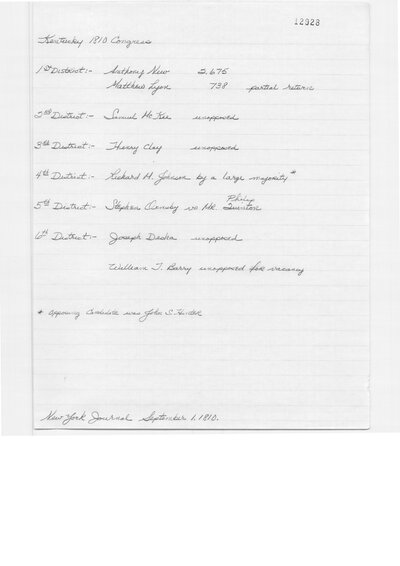 12928
Kentucky 1810 Congress
1st District:- Anthony New 2,676
Matthew Lyon 738 partial return
2nd District:- Samuel McKee unopposed
3rd District:- Henry Clay unopposed
4th District:- Richard M. Johnson by a large majority *
Philip
5th District:- Stephen Ormsby vs. Mr.
6th District:- Joseph Desha unopposed
William T. Barry unopposed for vacancy
* Opposing Candidate was John S. Hunter
New York Journal September 1, 1810.